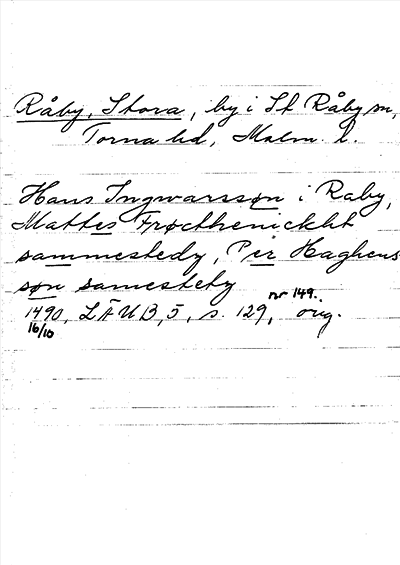 Råby, Stora, by i St Råby sn,
Torna hd, Malm. l.
Hans Ingwarssøn i Raby,
Mattes Frøcthenickht
sammestedy, Per Haghens
søn samestety
nr 149.
1490, LÄUB, 5, s. 129, orig.
16/10